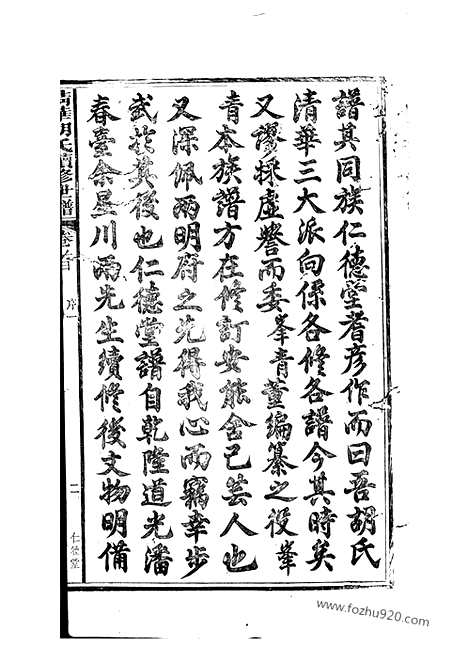 譜其同族仁德堂耆彦作而曰吾胡氏
清華三大派向係各修各譜今其時矣
又謬採虛譽而委峯青董編纂之役峯
青本族譜方在修訂安能舍己芸人也
又深佩兩明府之先得我心而竊幸步
武於其後也仁德堂譜自乾隆道光潘
春臺余星川兩先生續修後文物明備
清華胡氏續修世譜
卷之首
序一
二
仁德堂
www.fozhu920.com